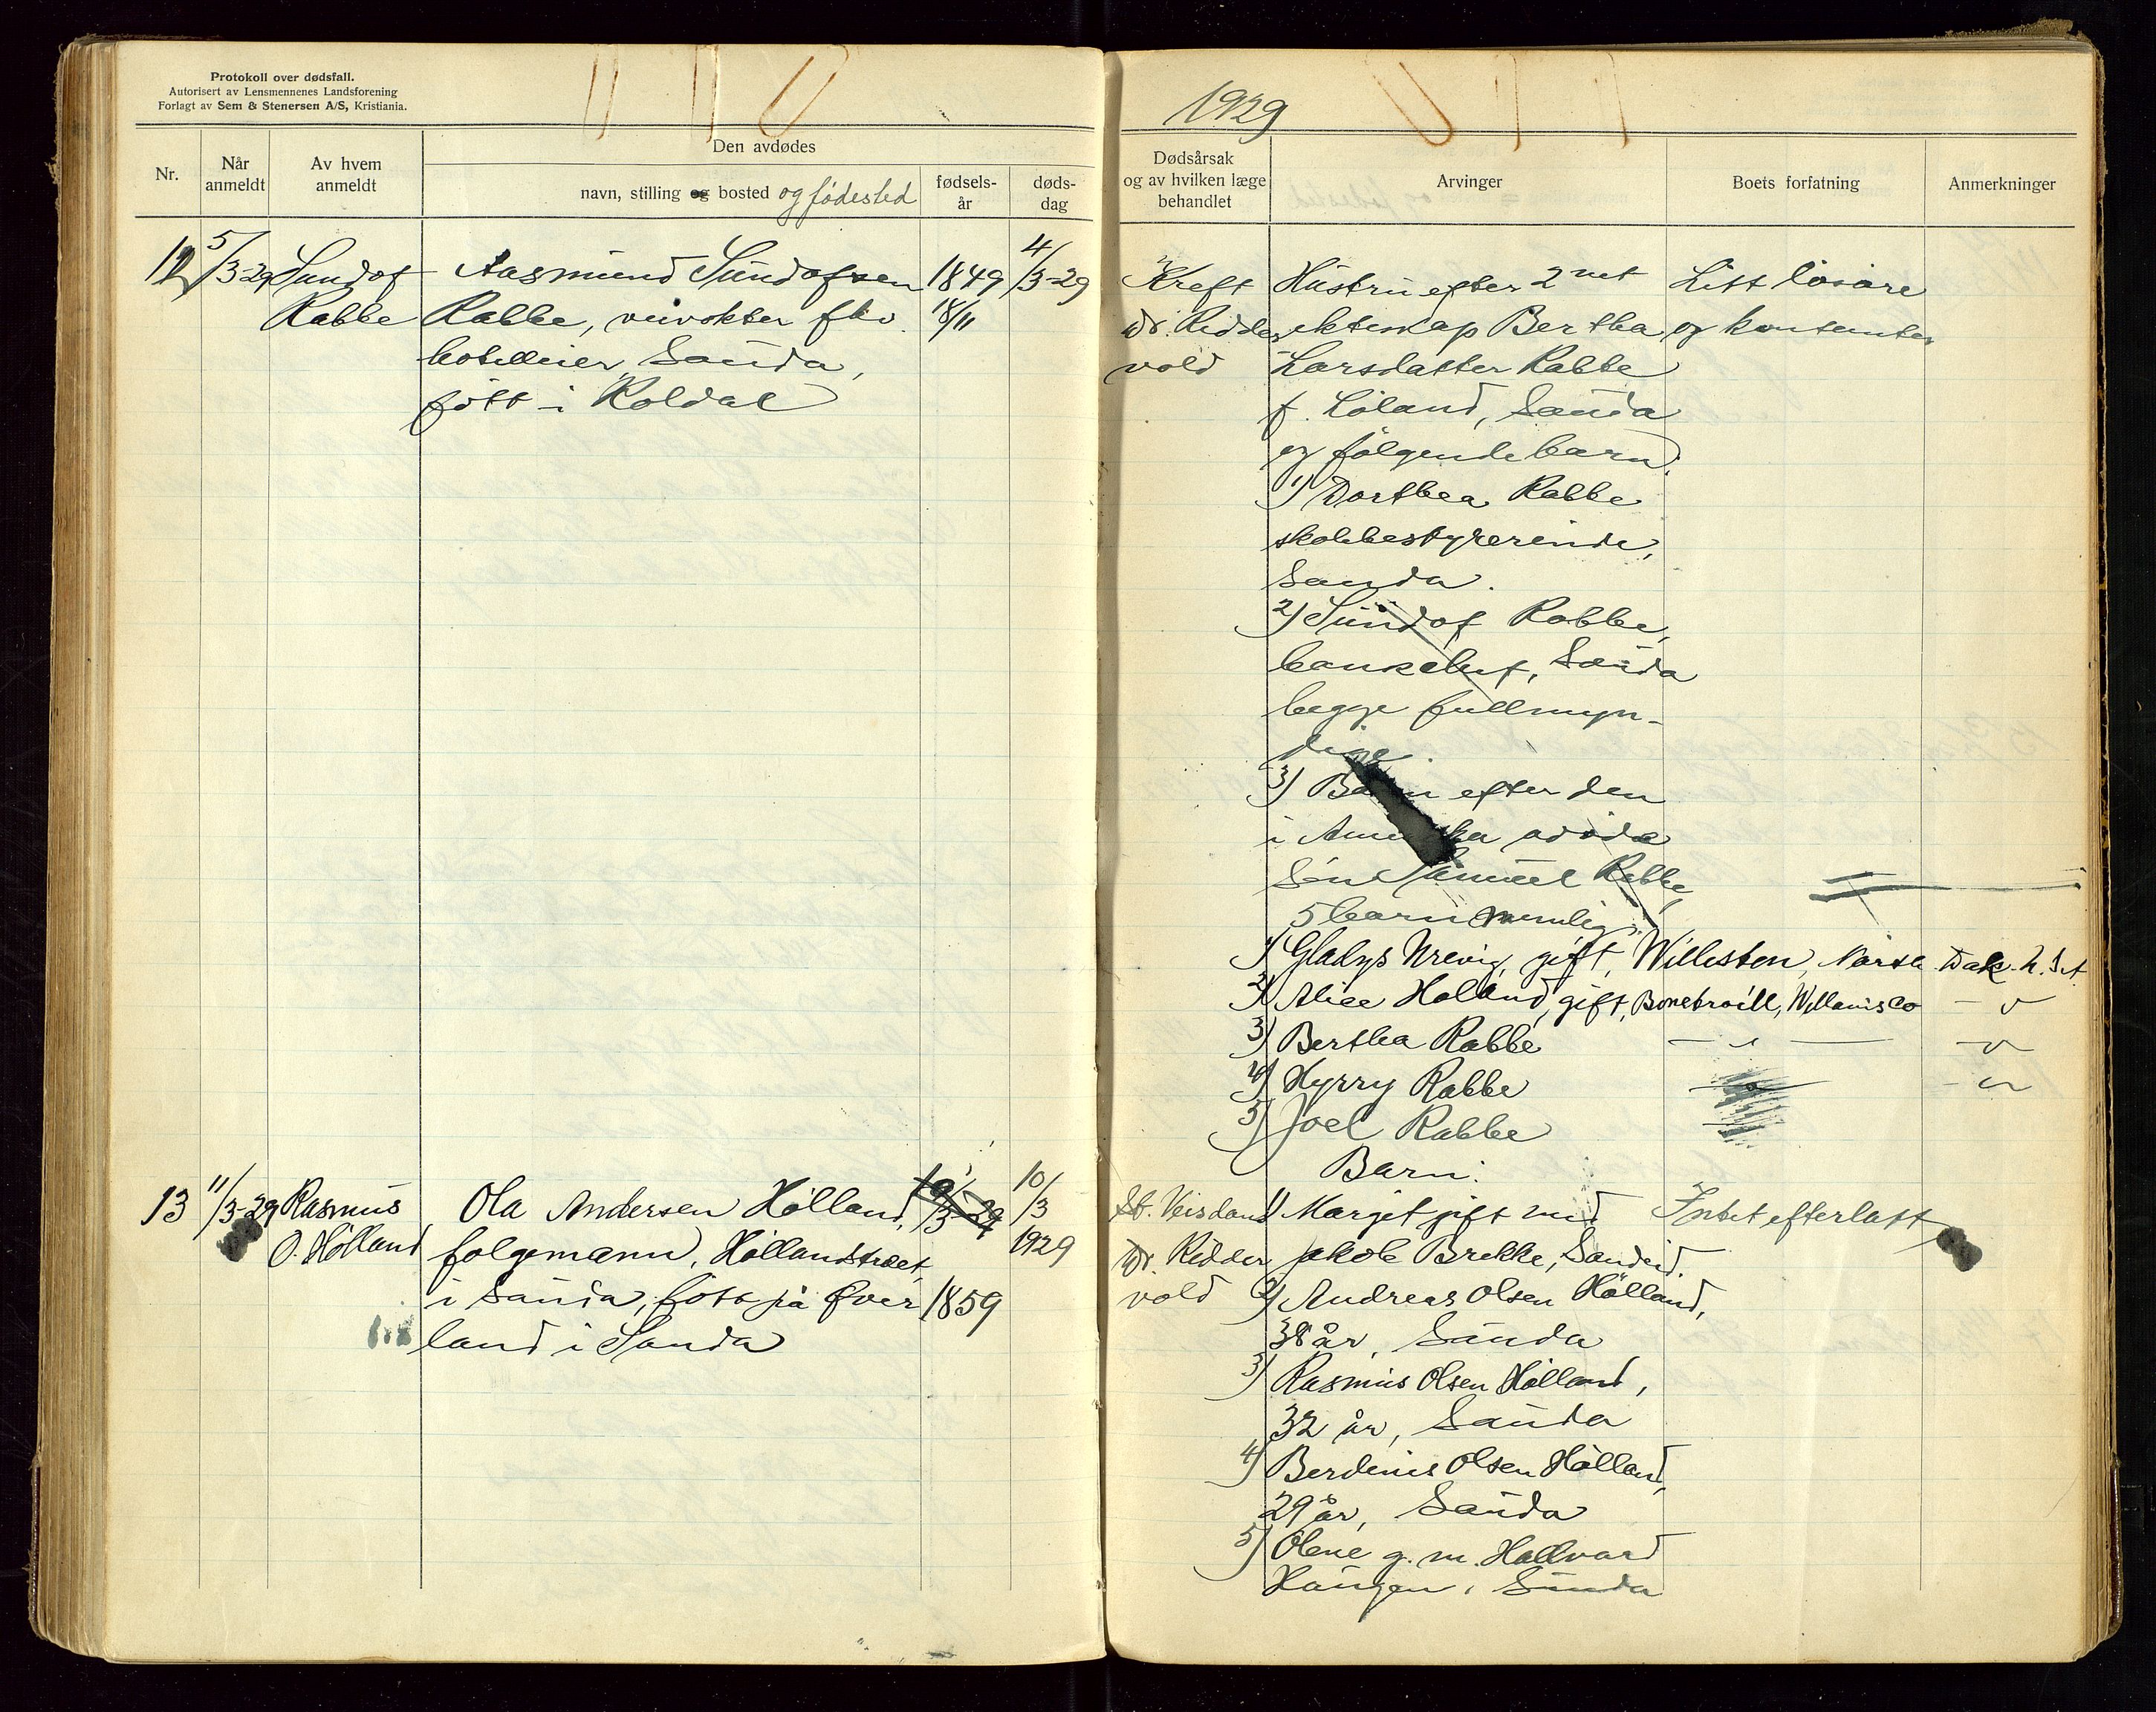 Protokoll over dødsfall.
Autorisert av Lensmennenes Landsforening
Forlagt av Sem & Stenersen A/S, Kristiania.
Nr.
Når anmeldt
Av hvem anmeldt
Den avdødes
navn, stilling og bosted og fødested
fødselsår
dødsdag
12 5/3-29 Sundof
Rabbe
Aasmund Sundofsen
Rabbe, veivokter fhv.
hotelleier, Sauda,
født i Roldal
1849
18/11
4/3-29
13 11/3-29 Rasmus
O. Hølland
Ola Andersen Hølland,
følgemann, Høllandstræet
i Sauda, født på Øver
land i Sauda
10/3-29
1859
10/3
1929
1929
Dødsårsak
og av hvilken læge
behandlet
Arvinger
Boets forfatning
Anmerkninger
Kreft
Dr. Ridder
vold
Hustru efter 2net
ekteskap Bertha
Larsdatter Rabbe
f. Løland, Sauda
og følgende barn:
1) Dorthea Rabbe
skolebestyrerinde,
Sauda.
2) Sundof Rabbe,
bankchef, Sauda
begge fullmyn-
dige.
3) Barn efter den
i Amerika avdøde
søn Samuel Rabbe,
5 barn nemlig:
Litt løsøre
og kontanter
1) Gladys Urevig, gift, Williston, North Dak. U.S.A.
2) Alice Holland, gift, Bonetraill, Williams Co
3) Bertha Rabbe
4) Hyrry Rabbe
5) Joel Rabbe
Barn:
Dr. Ridder
vold
1) Margit gift med
Jakob Brekke, Sandeid.
2) Andreas Olsen Hølland,
38 år, Sauda
3) Rasmus Olsen Hølland,
32 år, Sauda
4) Berdinus Olsen Hølland,
29 år, Sauda
5) Olene g. m. Hallvard
Haugen, Sauda
Intet efterlatt